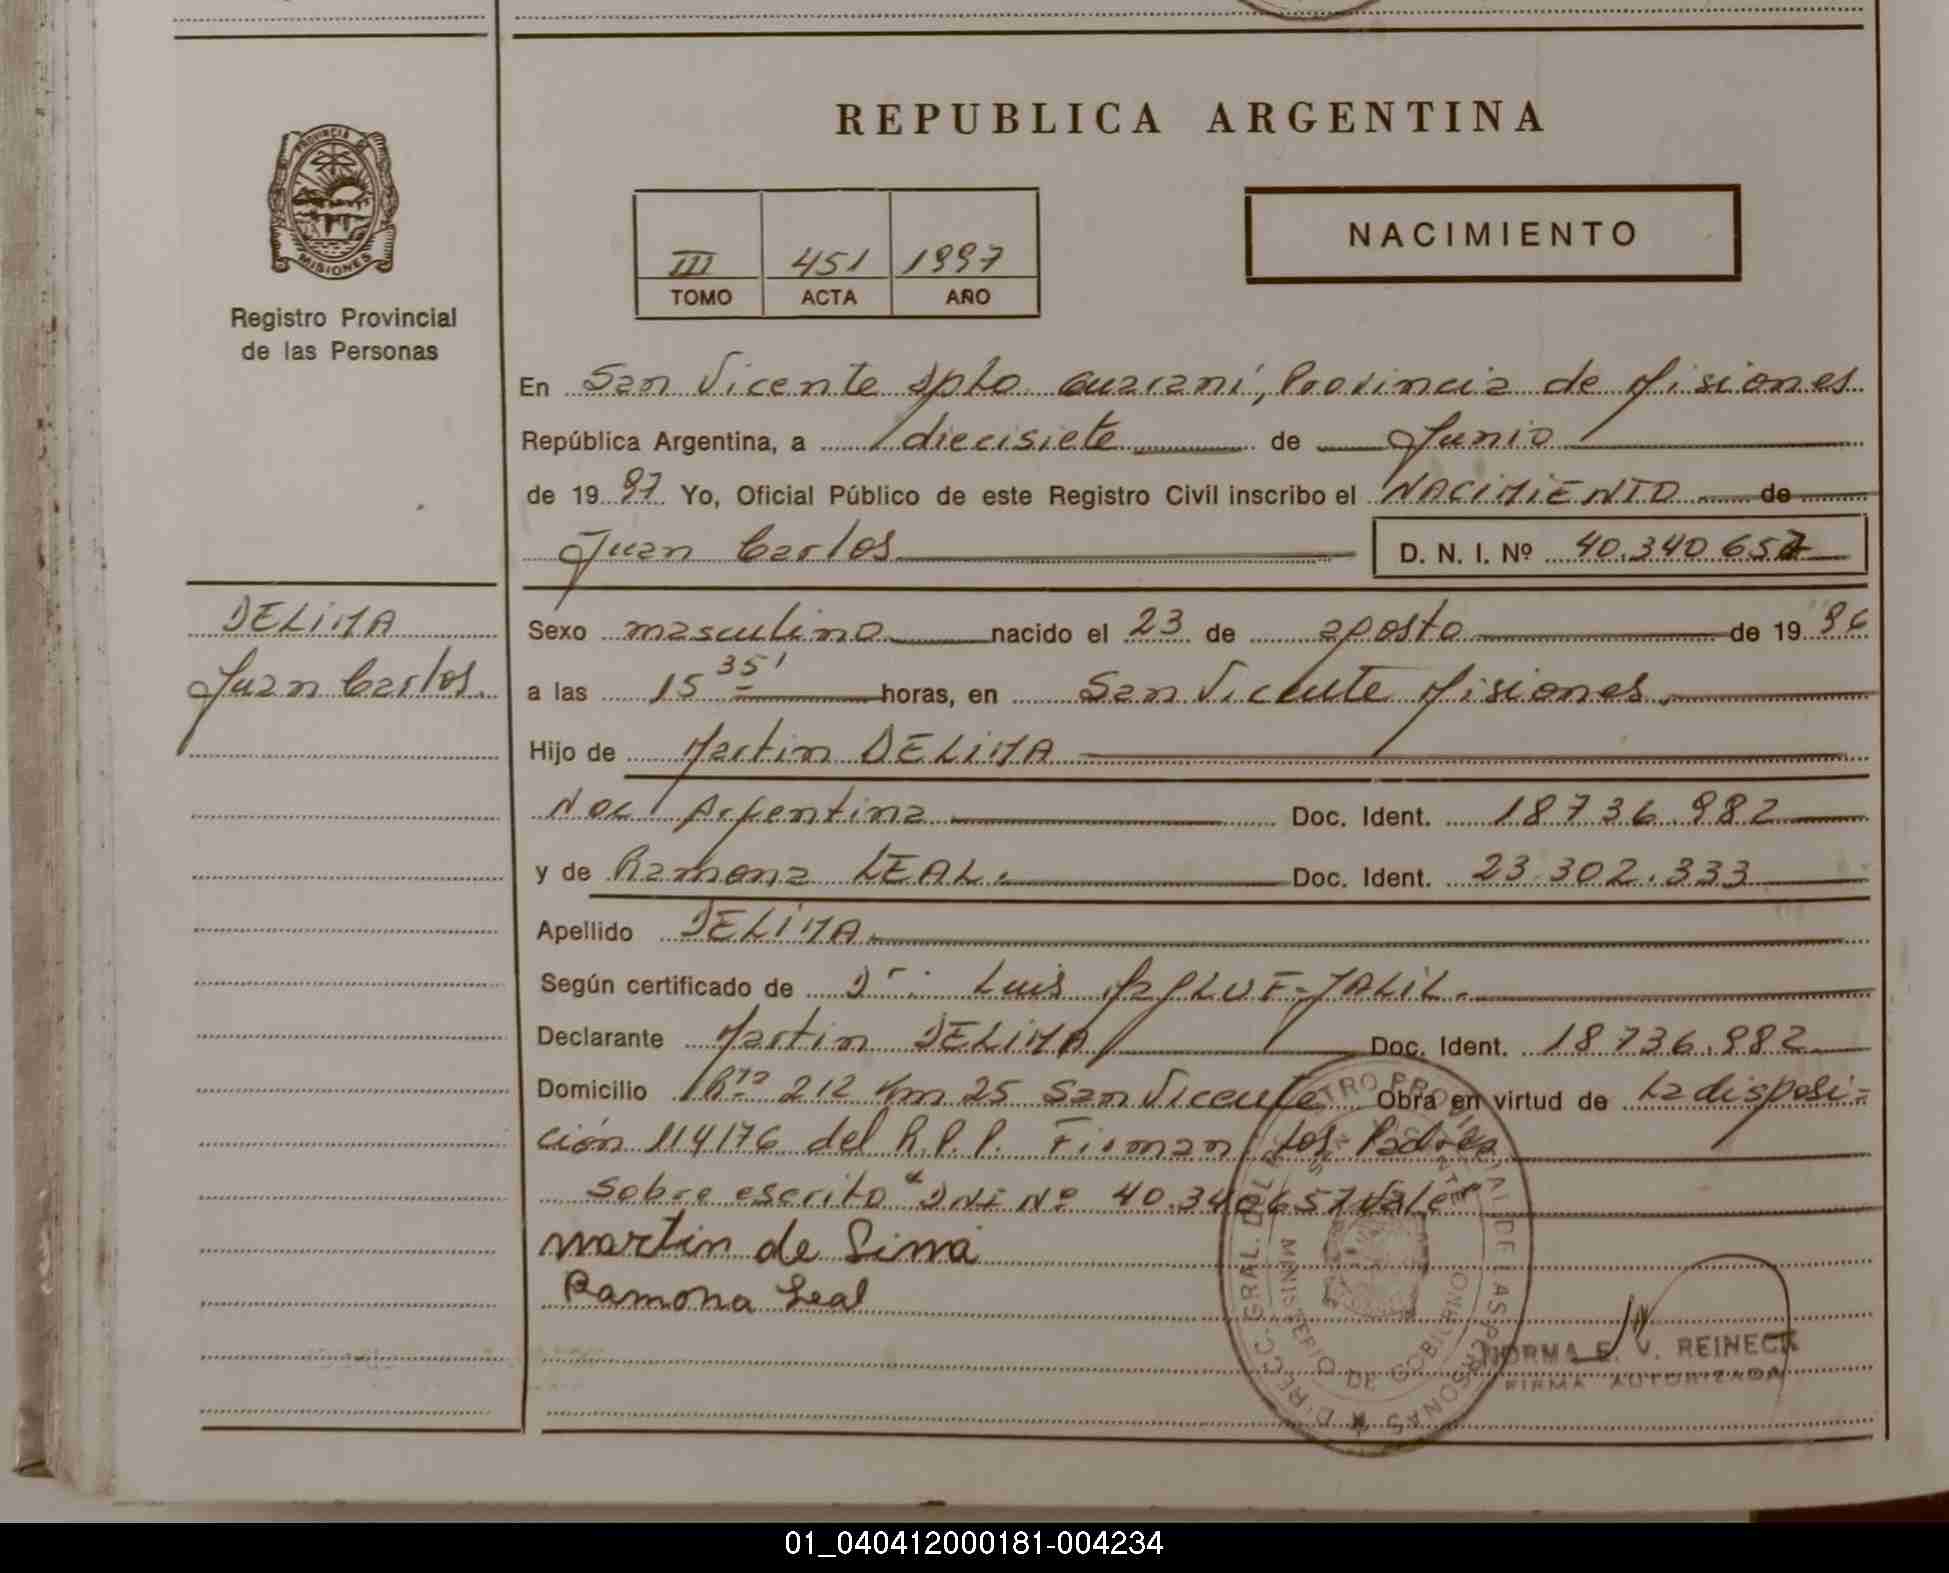 REPUBLICA ARGENTINA
PROVINCIA
MISIONES
Registro Provincial
de las Personas
III 451 1997
TOMO ACTA AÑO
NACIMIENTO
En San Vicente Dpto Guaraní, Provincia de Misiones
República Argentina, a diecisiete de Junio
de 19 97 Yo, Oficial Público de este Registro Civil inscribo el NACIMIENTO de
Juan Carlos D. N. I. Nº 40.340.657
DELIMA
Juan Carlos
Sexo masculino nacido el 23 de agosto de 19 96
a las 15 35' horas, en San Vicente Misiones.
Hijo de Martin DELIMA
Nac Argentina Doc. Ident. 18736.982
y de Ramona LEAL. Doc. Ident. 23.302.333
Apellido DELIMA.
Según certificado de Dr. Luis JALIL.
Declarante Martin DELIMA Doc. Ident. 18736.982
Domicilio Rta 212 Km 25 San Vicente Obra en virtud de La disposi-
ción 114176 del R.P.P. Firman los Padres
Sobre escrito "DNI Nº 40.340657 Vale"
martin de Lima
Ramona Leal
DIRECC. GRAL. DEL REGISTRO PROVINCIAL DE LAS PERSONAS
SAN VICENTE
MINISTERIO DE GOBIERNO
NORMA E. V. REINECK
FIRMA AUTORIZADA
01_040412000181-004234